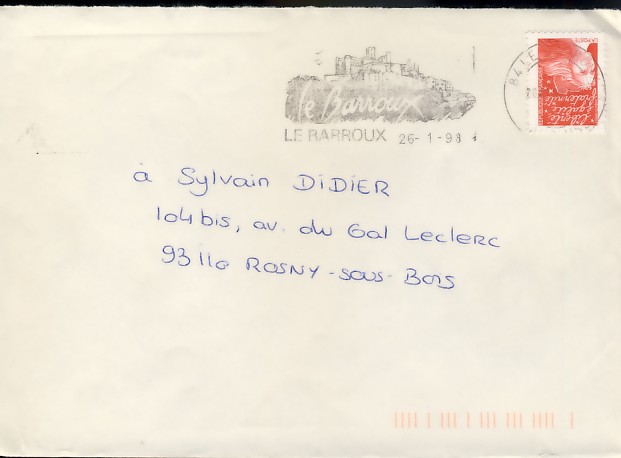 le Barroux
LE BARROUX 26-1-98
LA POSTE
liberté
égalité
fraternité
à Sylvain DIDIER
104 bis, av. du Gal Leclerc
93110 ROSNY-SOUS-BOIS